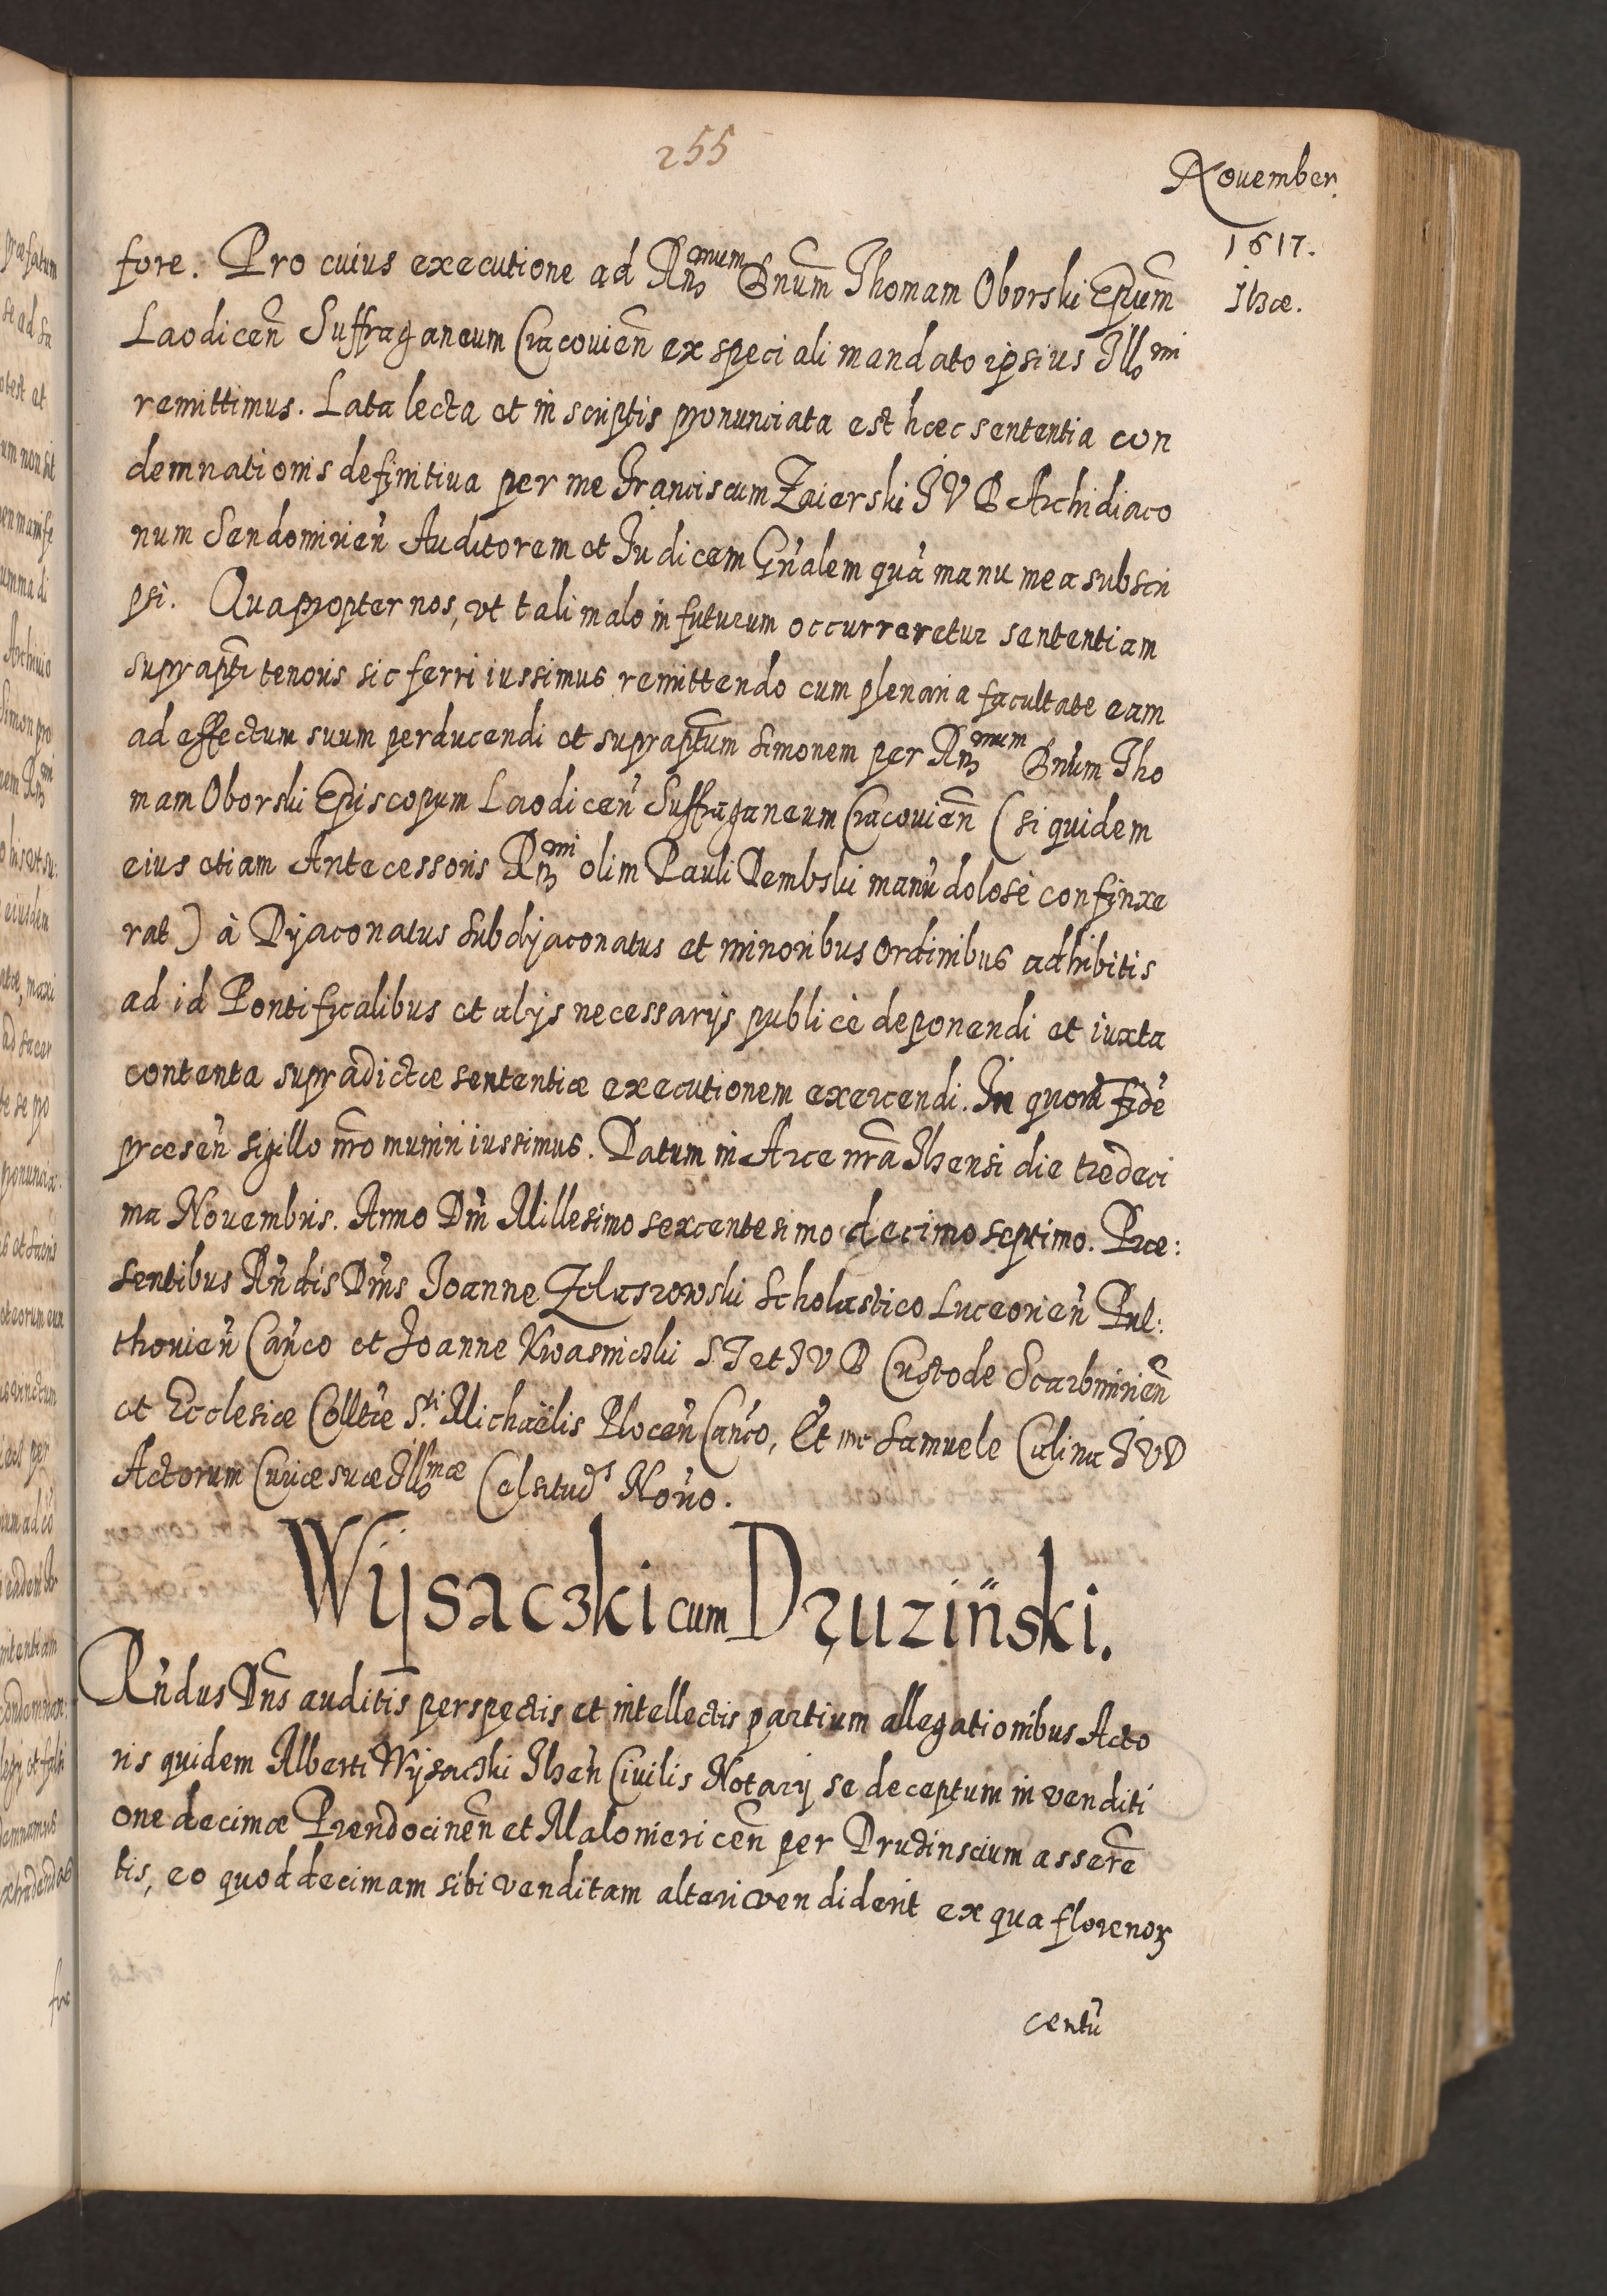 255
November.
1617.
Ilzæ.
fore. Pro cuius executione ad Rnd̄mum Dnūm Thomam Oborski Epūm
Laodiceñ Suffraganeum Cracovieñ ex speciali mandato ipsius Illmi
remittimus. Lata lecta et in scriptis pronunciata est hæc sententia con
demnationis definitiua per me Franciscum Zaierski I V D Archidiaco
num Sendomirieñ Auditorem et Iudicem Gñalem quà manu mea subscri
psi. Quapropter nos, vt tali malo in futurum occurreretur sententiam
suprapti tenoris sic ferri iussimus remittendo cum plenaria facultate eam
ad effectum suum perducendi et supraptum Simonem per Rnd̄mum Dnum Tho
mam Oborski Episcopum Laodiceñ Suffraganeum Cracovieñ (siquidem
eius etiam Antecessoris Rnd̄mi olim Pauli Dembski manũ dolosè confinxe
rat) à Dyaconatus Subdyaconatus et minoribus ordinibus adhibitis
ad id Pontificalibus et alijs necessarijs publicè deponendi et iuxta
contenta supradictæ sententiæ executionem exercendi. In quorũ fidẽ
præseñ sigillo nr̄o muniri iussimus. Datum in Arce nr̄a Ilzensi die tredeci
ma Novembris. Anno Dnī Millesimo sexcentesimo decimo septimo. Præ:
sentibus Rñdis Dnīs Joanne Zelaszowski Scholastico Luceorieñ Pul:
thovieñ Cañco et Joanne Kwasnicski S T et I V D Custode Scarbmirieñ
et Ecclesiæ Colltæ S.ti Michaëlis Ploceñ Cañco, Et me Samuele Calina I V D
Actorum Curiæ suæ Illmæ Celsitud̄s Norio.
Wijsaczki cum Druziński.
Rñdus Dns̄ auditis perspectis et intellectis partium allegationibus Acto
ris quidem Alberti Wijsaczki Ilzeñ Civilis Notarij se deceptum in venditi
one decimæ Prendocineñ et Malomiericeñ per Drudinscium asserẽ
tis, eo quod decimam sibi venditam alteri vendiderit ex qua florenoꝝ
centũ